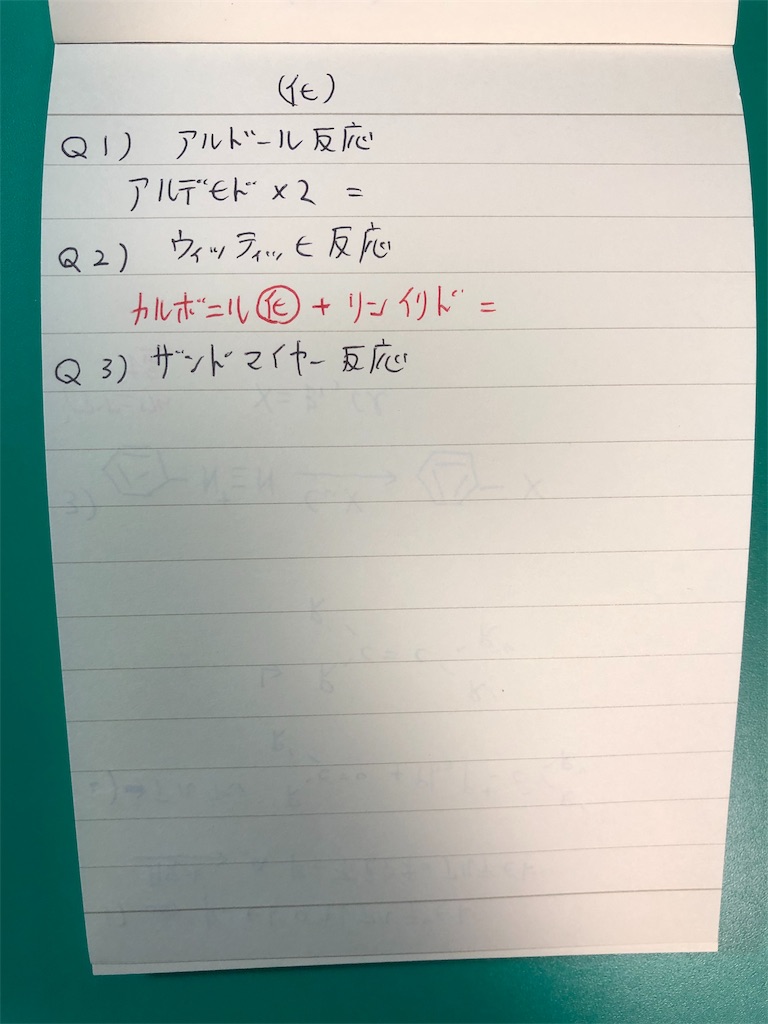 (化)
Q1) アルドール反応
アルデヒド×2 =
Q2) ウィッティヒ反応
カルボニル化 + リンイリド =
Q3) ザンドマイヤー反応